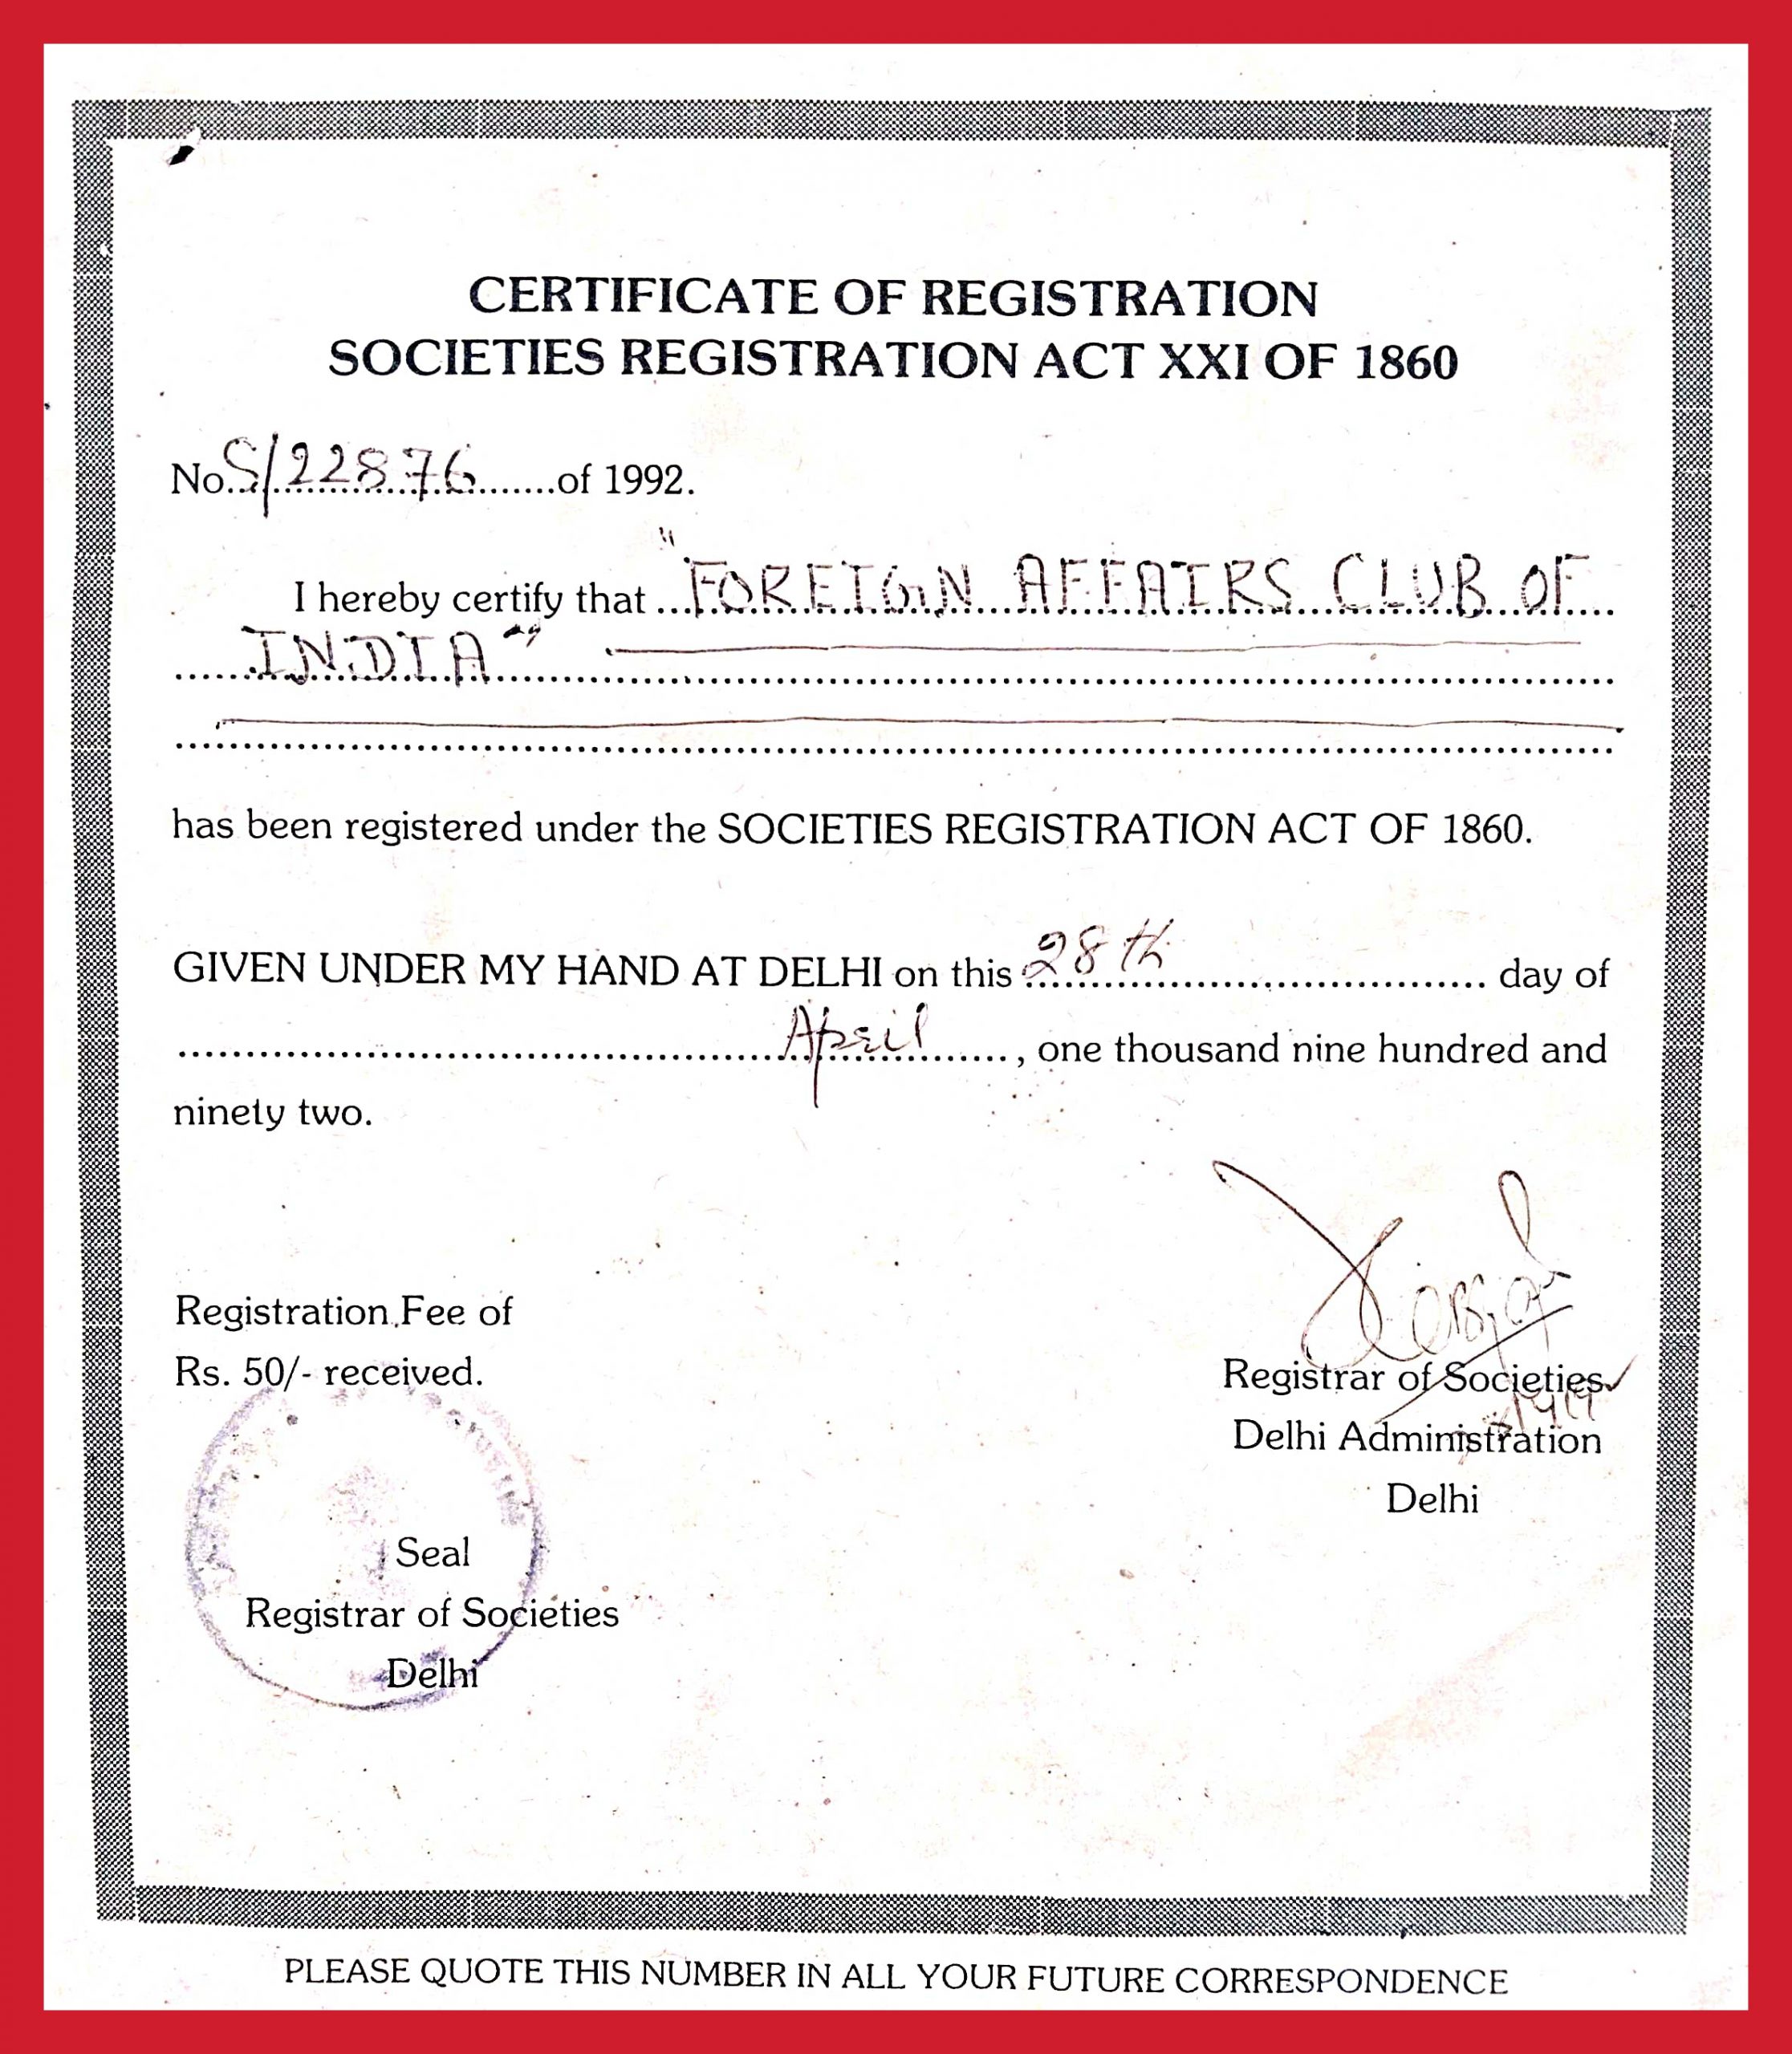 CERTIFICATE OF REGISTRATION
SOCIETIES REGISTRATION ACT XXI OF 1860
No. S/22876 of 1992.
I hereby certify that "FOREIGN AFFAIRS CLUB OF
INDIA"
has been registered under the SOCIETIES REGISTRATION ACT OF 1860.
GIVEN UNDER MY HAND AT DELHI on this 28th day of
April, one thousand nine hundred and
ninety two.
Registration Fee of
Rs. 50/- received.
Registrar of Societies
Delhi Administration
Delhi
Seal
Registrar of Societies
Delhi
PLEASE QUOTE THIS NUMBER IN ALL YOUR FUTURE CORRESPONDENCE